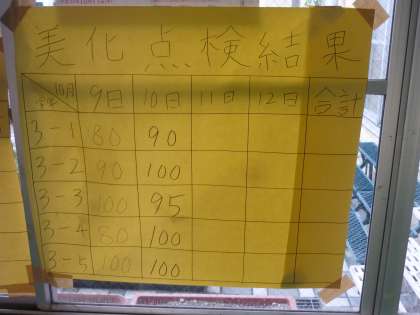 美化点検結果
10月 9日 10日 11日 12日 合計
3-1 80 90
3-2 90 100
3-3 100 95
3-4 80 100
3-5 100 100